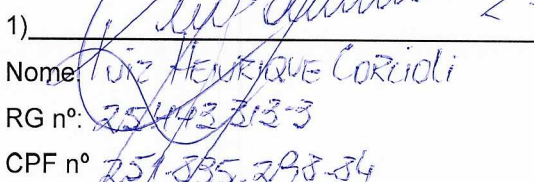 1)
Nome: Luiz HENRIQUE CORCIOLI
RG nº: 25443313-3
CPF nº 251.895.298-84